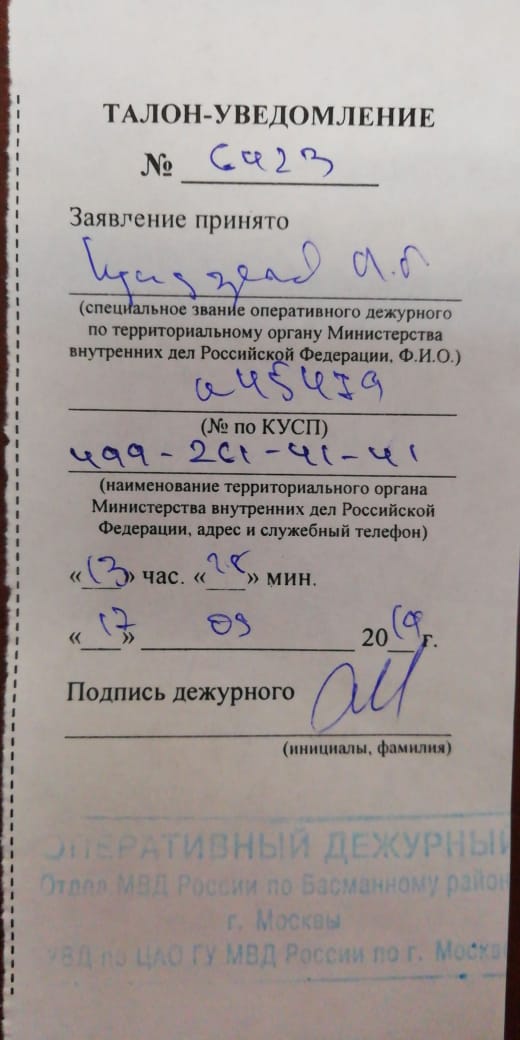 ТАЛОН-УВЕДОМЛЕНИЕ
№ 6423
Заявление принято
А.Г.
(специальное звание оперативного дежурного
по территориальному органу Министерства
внутренних дел Российской Федерации, Ф.И.О.)
(№ по КУСП)
499-261-41-41
(наименование территориального органа
Министерства внутренних дел Российской
Федерации, адрес и служебный телефон)
«13» час. «28» мин.
«17» 09 2019г.
Подпись дежурного
(инициалы, фамилия)
ОПЕРАТИВНЫЙ ДЕЖУРНЫЙ
Отдел МВД России по Басманному район
г. Москвы
УВД по ЦАО ГУ МВД России по г. Москв